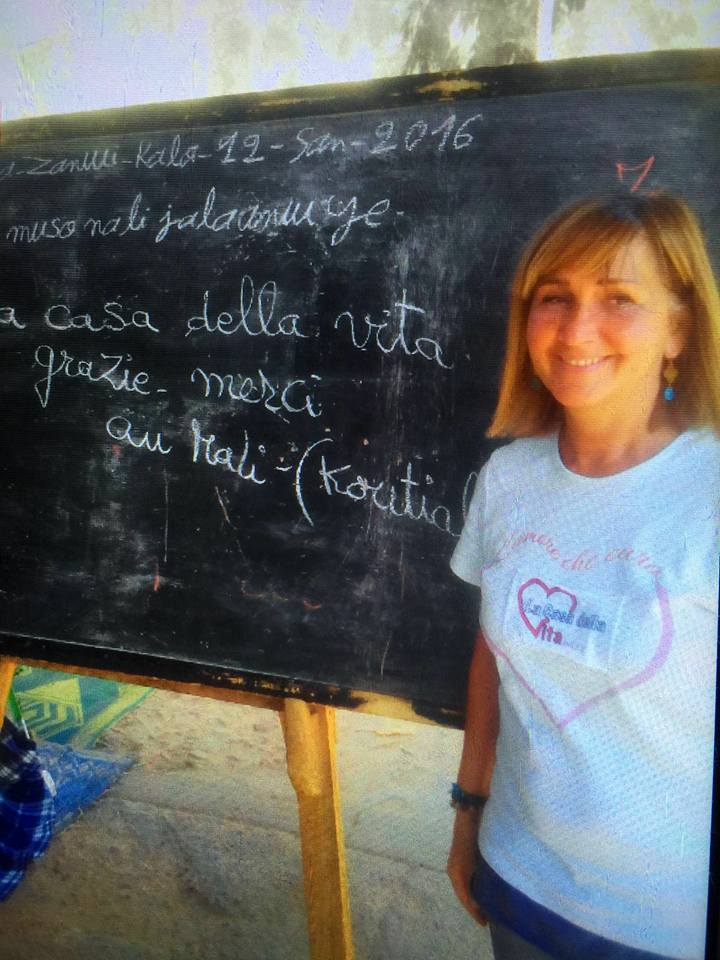 a-zanwu-Kalo-12-San-2016
muso nali jalaamuu ye-
a casa della vita
grazie- merci
au Mali-(Koutial
che cura
La Casa della
Vita